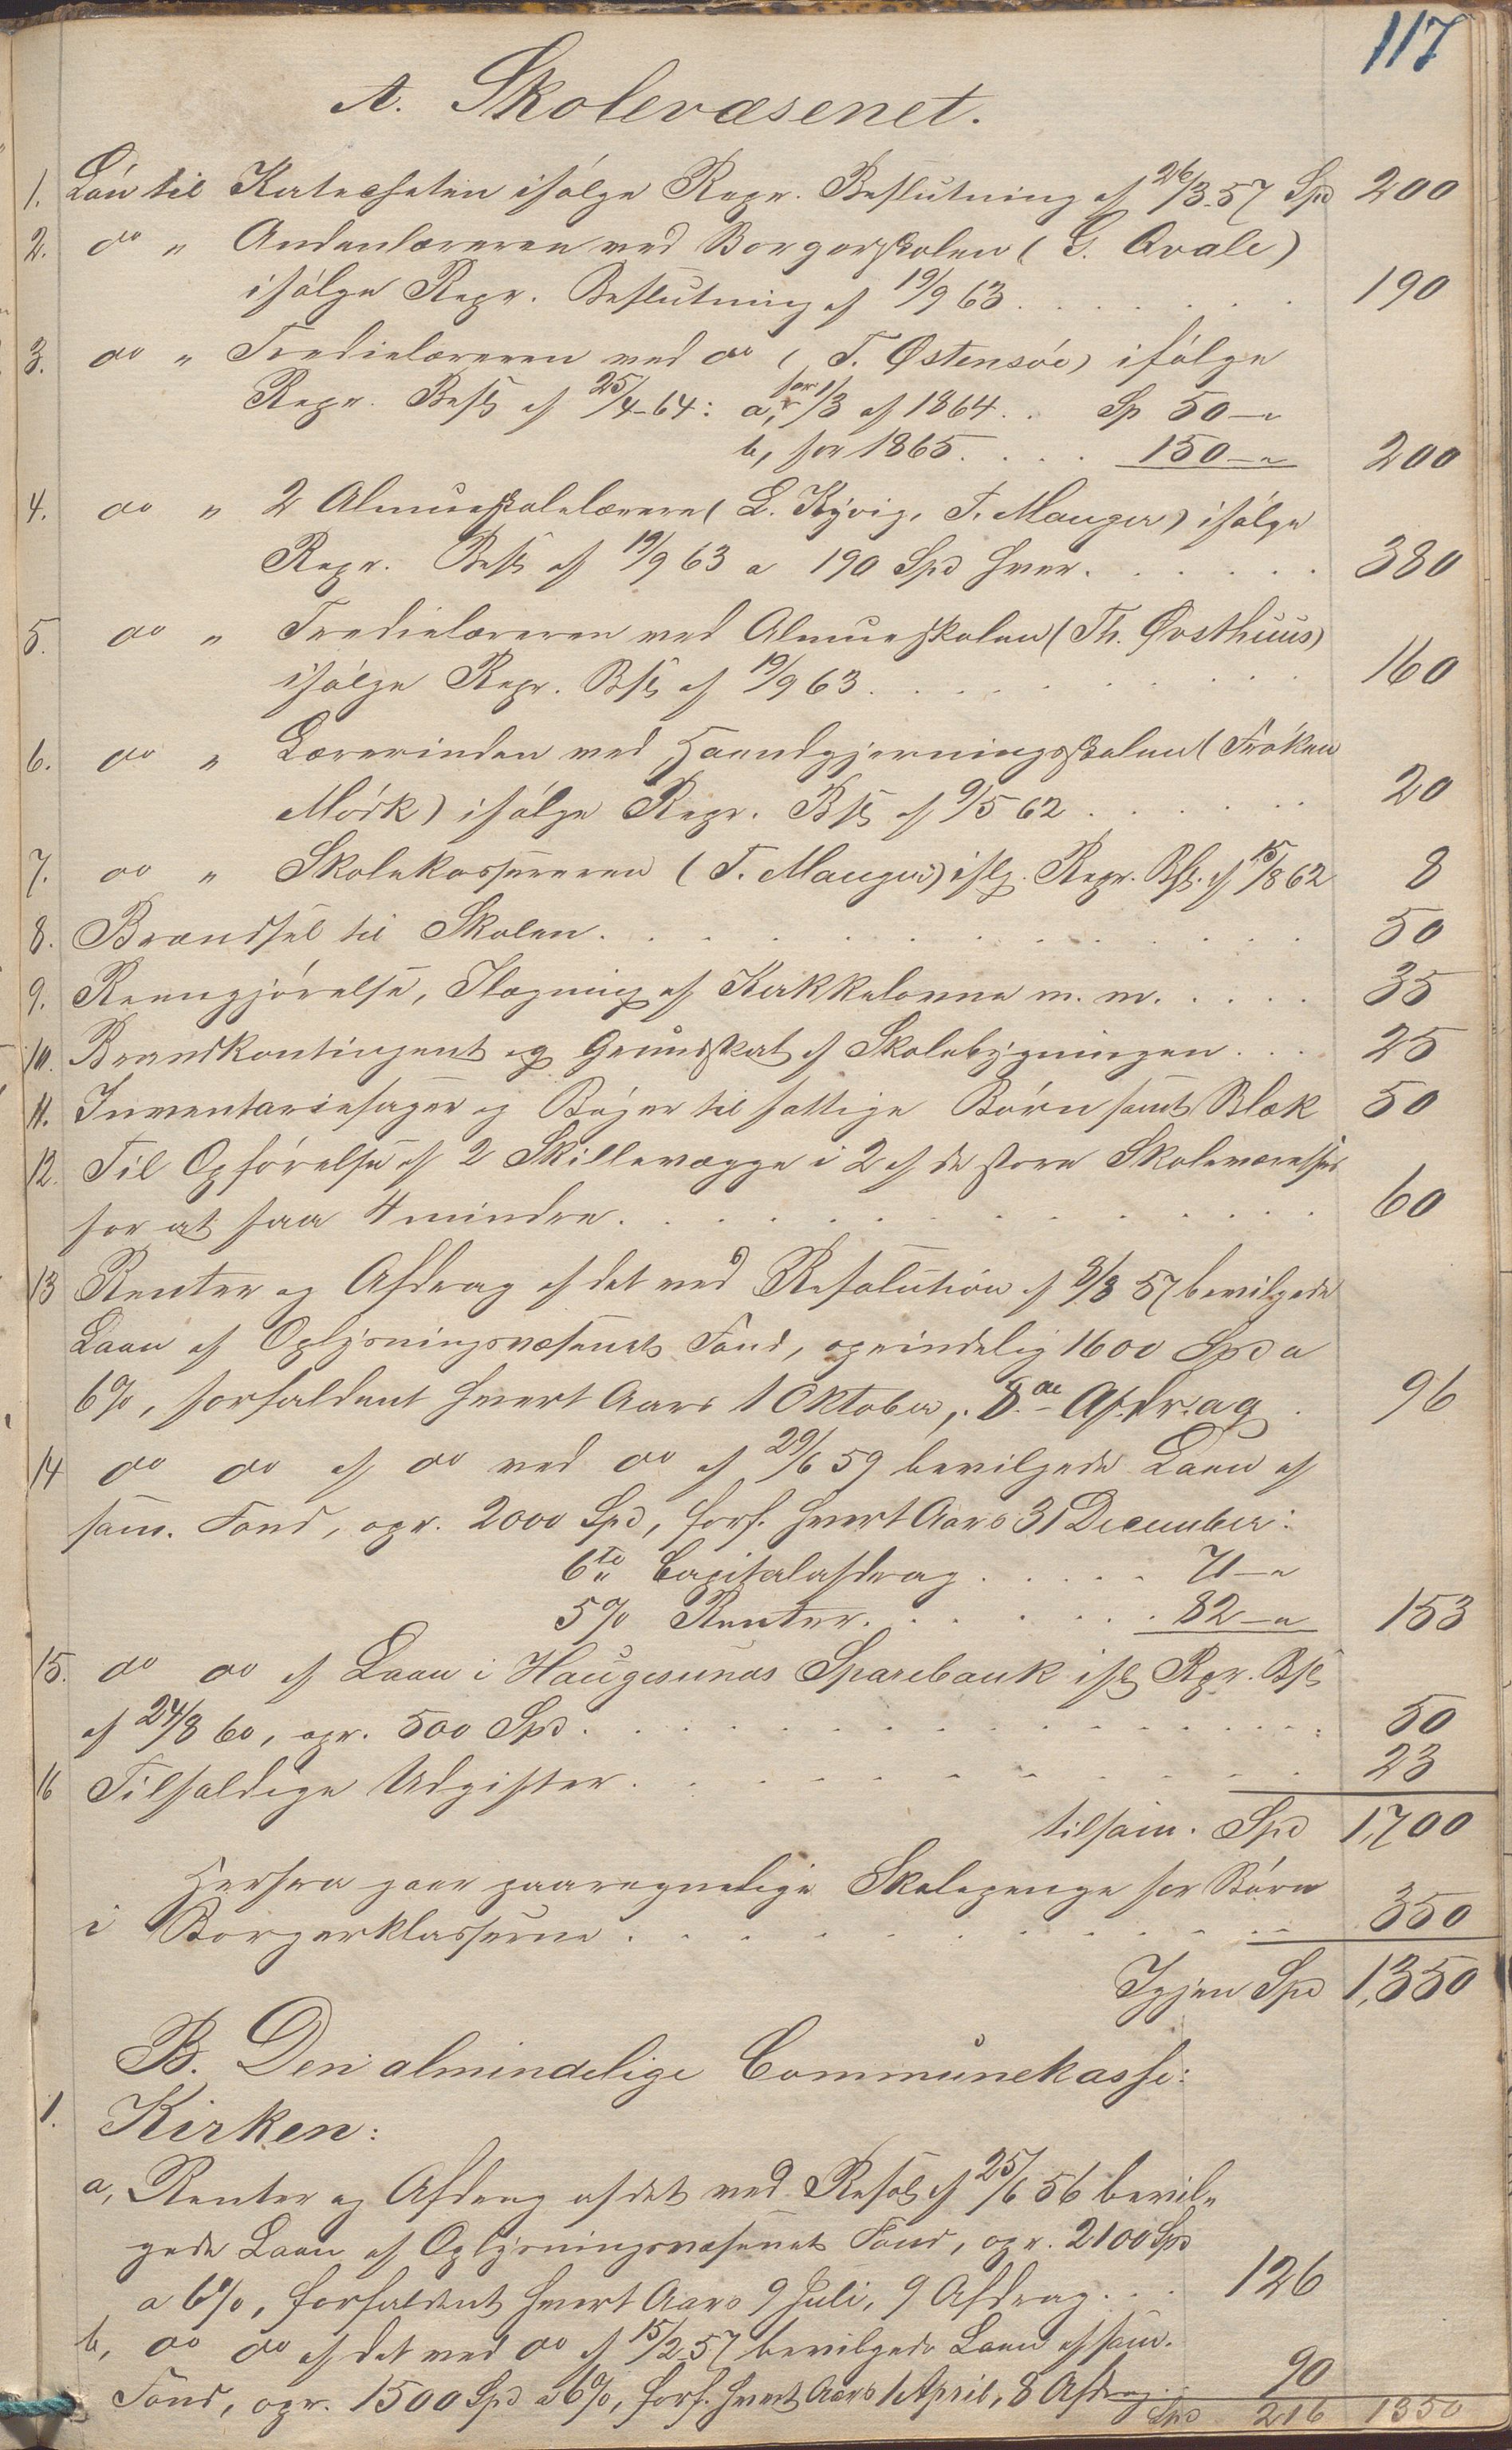 117
A. Skolevæsenet.
1. Løn til Katecheten ifølge Repr. Beslutning af 26/3-57 Spd 200
2. do " Andenlæreren ved Borgerskolen (G. Qvale)
ifølge Repr. Beslutning af 19/9 63. . . . . . . 190
3. do " Tredielæreren ved do (T. Østensøe) ifølge
Repr. Besl. af 25/4-64: a, for 1/3 af 1864. . Sp 50 – "
b, for 1865. . . . 150 – " 200
4. do " 2 Almueskolelærere (L. Kyvig, T. Manger) ifølge
Repr. Besl. af 19/9 63 a 190 Spd hver. . . . . . 380
5. do " Tredielæreren ved Almueskolen (Th. Øvsthuus)
ifølge Repr. Bsl. af 19/9 63. . . . . . . . . 160
6. do " Lærerinden ved Haandgjerningsskolen (Frøken
Mørk) ifølge Repr. Bsl. af 9/5 62 . . . . . . 20
7. do " Skolekassereren (T. Manger) iflg. Repr. Bsl. af 15/8 62 8
8. Brændsel til Skolen. . . . . . . . . . . . 50
9. Reengjørelse, Ilægning af Kakkelovne m. m. . . . . 35
10. Brandkontingent og Grundskat af Skolebygningen. . . 25
11. Inventariesager og Bøger til fattige Børn samt Blæk 50
12. Til Opførelse af 2 Skillevægge i 2 af de store Skoleværelser
for at faa 4 mindre. . . . . . . . . . . . 60
13 Renter og Afdrag af det ved Resolution af 8/8 57 bevilgede
Laan af Oplysningsvæsenets Fond, oprindelig 1600 Spd a
6%, forfaldent hvert Aars 1 Oktober, 8de Afdrag . 96
14 do do af do ved do af 29/6 59 bevilgede Laan af
sam. Fond, opr. 2000 Spd, forf. hvert Aars 31 December:
6te Capitalafdrag . . . . . 71 – "
5% Renter. . . . . . . 82 – " 153
15. do do af Laan i Haugesunds Sparebank ifl. Rpr. Bsl.
af 24/8 60, opr. 500 Spd. . . . . . . . . . . 50
16 Tilfældige Udgifter. . . . . . . . . . . . 23
tilsam. Spd 1,700
Herfra gaar paaregnelige Skolepenge for Børn
i Borgerklasserne . . . . . . . . . . . 350
Igjen Spd 1,350
B. Den almindelige Communekasse:
1. Kirken:
a, Renter og Afdrag af det ved Resol. af 25/6 56 bevil-
gede Laan af Oplysningsvæsenets Fond, opr. 2100 Spd
a 6%, forfaldent hvert Aars 9 Juli, 9 Afdrag. . . 126
b, do do af det ved do af 15/2 57 bevilgede Laan af sam.
Fond, opr. 1500 Spd a 6%, forf. hvert Aars 1 April, 8 Afdrag. . 90
Spd 216 1350